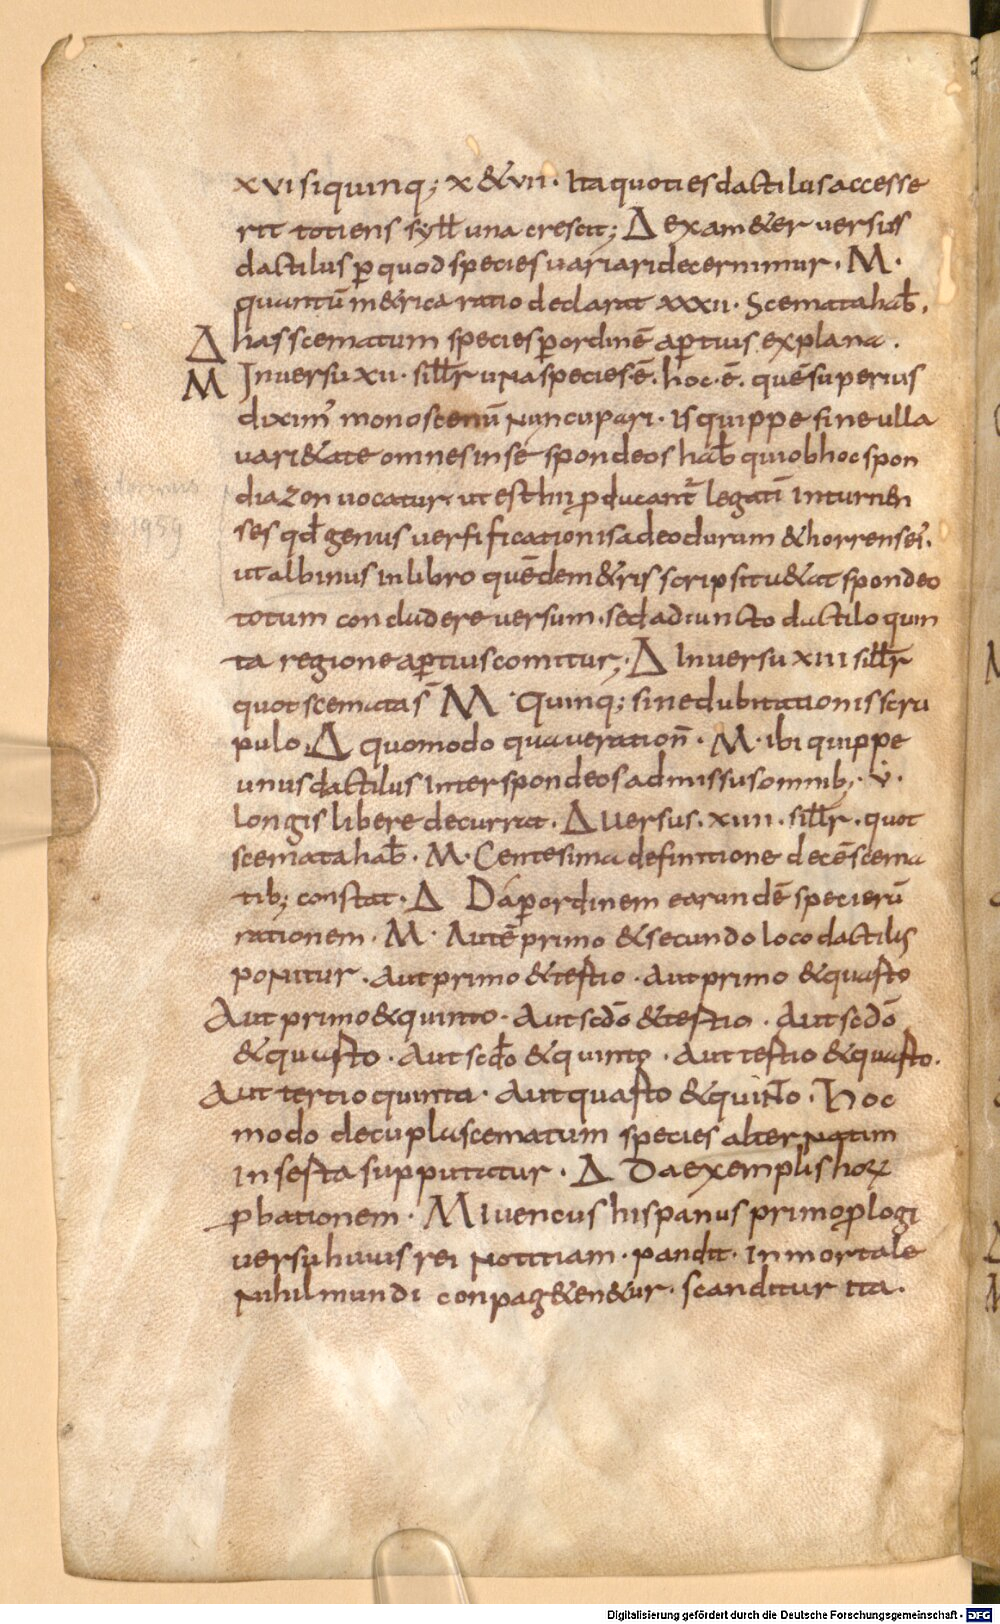 xvi si quinq; x & vii · Ita quoties dactilus accesse
rit totiens syll una crescit; Δ exam&er versus
dactilus p quod species variari decernimur · M ·
quantū m&rica ratio declarat xxxii · Scemata hab̄ ·
Δ has scematum species p ordinē apertius explana ·
M In versu xii · sillr una species ē · hoc · ē · quē superius
diximʼ monoscenū nuncupari · is quippe sine ulla
vari&ate omnes in se spondeos hab̄ qui ob hoc spon
diazon vocatur ut est hi pducant legati inturnen
ses qd genus versificationis adeo durum & horrens ei ·
ut albinus in libro quē dem&ris scripsit u&at spondeo
totum concludere versum · sed adiuncto dactilo quin
ta regione aptius comitur; Δ In versu xiii sillr
quot scemata s̄ M · Quinq; sine dubitationis scru
pulo · Δ quomodo qua ve ration̄ · M · ibi quippe
unus dactilus inter spondeos admissus omnib; · v ·
longis libere decurrit · Δ Versus · xiiii · sillr · quot
scemata hab̄ · M · Centesima definitione decē scema
tib; constat · Δ Da p ordinem earundē specierū
rationem · M · Autē primo & secundo loco dactilis
ponitur · aut primo & tertio · aut primo & quarto
Aut primo & quinto · Aut scdō & tertio · Aut scdō
& quarto · Aut scdo & quinto · Aut tertio & quarto ·
Aut tertio quinta · Aut quarto & quinto · Hoc
modo decupla scematum species alternatim
in serta supputatur · Δ Da exemplis horꝝ
pbationem · M Iuvencus hispanus primo plogi
versu huius rei notitiam · pandit · Inmortale
nihil mundi conpag&en&ur · scanditur ita ·
1959
Digitalisierung gefördert durch die Deutsche Forschungsgemeinschaft - DFG